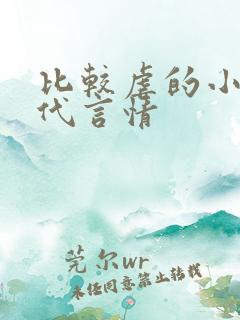 比较虐的小
代言情
莞尔wr
未经同意禁止转载